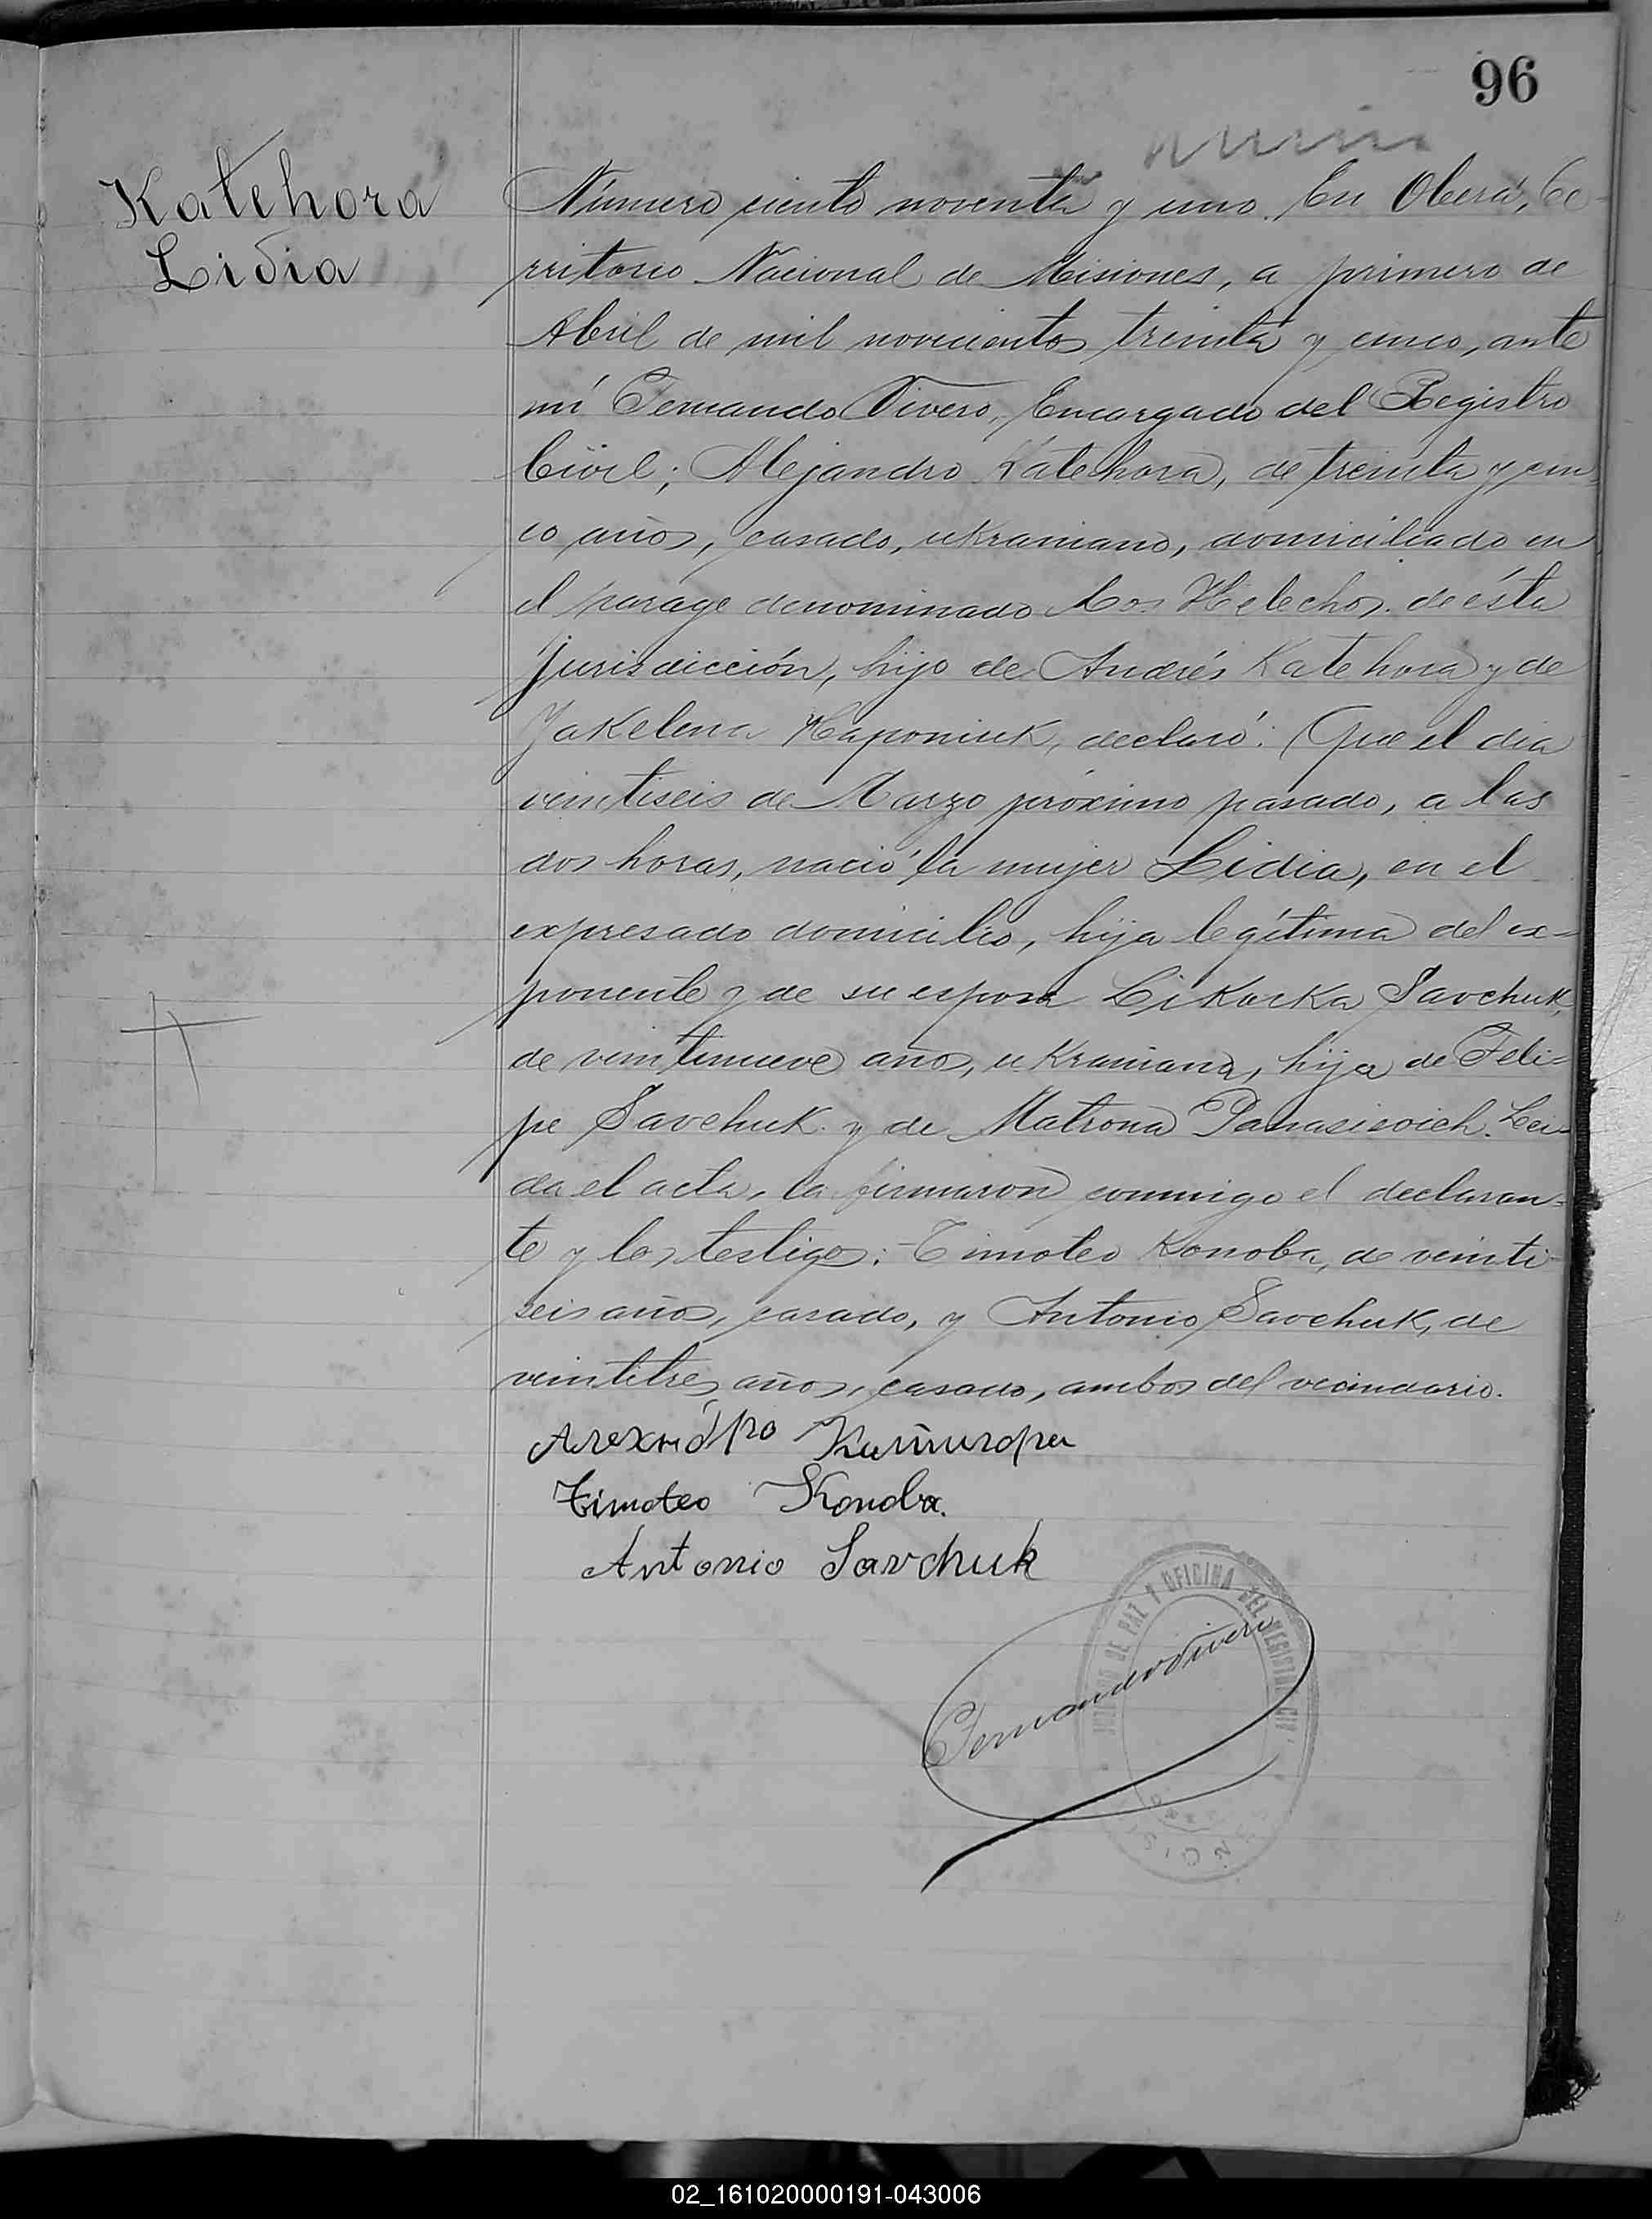 96
Katehora
Lidia
Número ciento noventa y uno. En Oberá, Te-
rritorio Nacional de Misiones, a primero de
Abril de mil novecientos treinta y cinco, ante
mí Fernando Vivero, Encargado del Registro
Civil; Alejandro Katehora, de treinta y cin-
co años, casado, ukraniano, domiciliado en
el parage denominado Los Helechos de ésta
jurisdicción, hijo de Andrés Katehora y de
Jakelena Haponiuk, declaró: Que el dia
veintiseis de Marzo próximo pasado, a las
dos horas, nació la mujer Lidia, en el
expresado domicilio, hija legítima del ex=
ponente y de su esposa Likorka Savchuk,
de veintinueve años, ukraniana, hija de Feli=
pe Savchuk y de Matrona Panasievich. Lei-
da el acta, la firmaron conmigo el declaran=
te y los testigos: Timoteo Konoba, de veinti-
seis años, casado, y Antonio Savchuk, de
veintitres años, casado, ambos del vecindario.
Timoteo Konoba.
Antonio Savchuk
Fernando Vivero
DE PAZ Y OFICINA DEL REGISTRO CIV
02_161020000191-043006